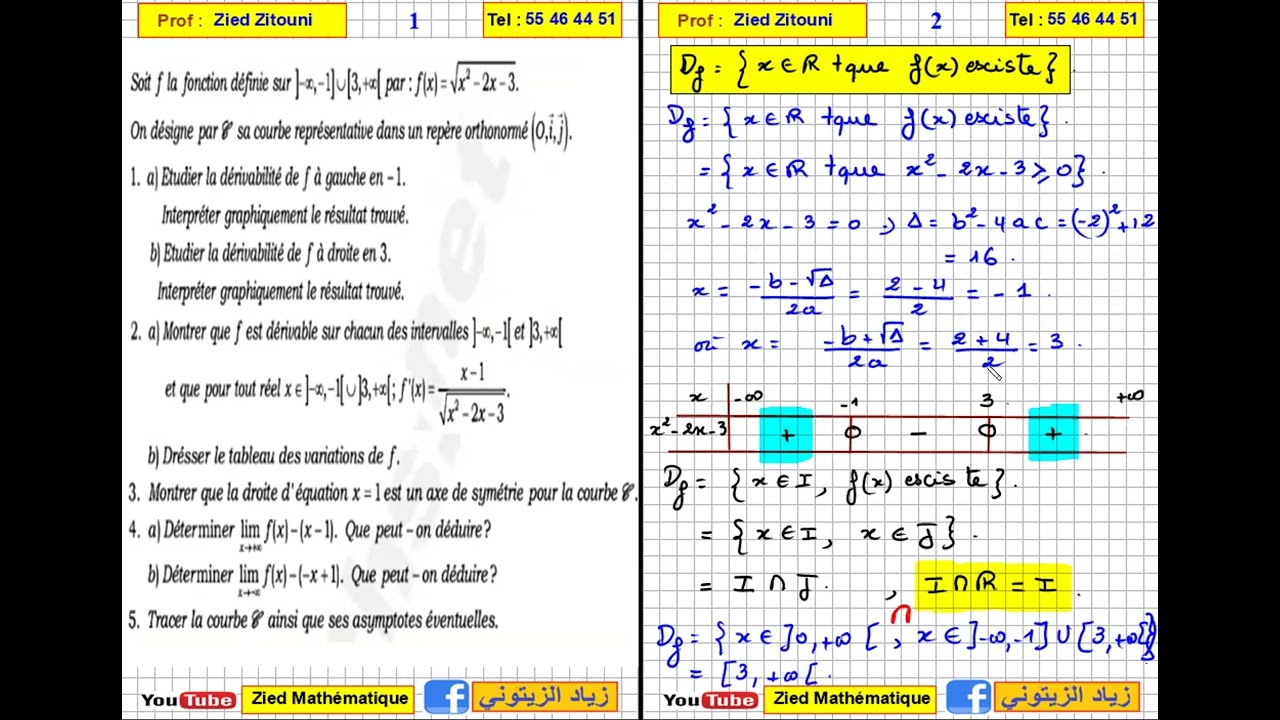 Prof : Zied Zitouni
1
Tel : 55 46 44 51
Soit f la fonction définie sur ]-∞,-1]∪[3,+∞[ par : f(x)=√(x²-2x-3).
On désigne par 𝒞 sa courbe représentative dans un repère orthonormé (O,i⃗,j⃗).
1. a) Etudier la dérivabilité de f à gauche en -1.
Interpréter graphiquement le résultat trouvé.
b) Etudier la dérivabilité de f à droite en 3.
Interpréter graphiquement le résultat trouvé.
2. a) Montrer que f est dérivable sur chacun des intervalles ]-∞,-1[ et ]3,+∞[
et que pour tout réel x∈]-∞,-1[∪]3,+∞[ ; f'(x)= (x-1)/√(x²-2x-3).
b) Drésser le tableau des variations de f.
3. Montrer que la droite d'équation x = 1 est un axe de symétrie pour la courbe 𝒞.
4. a) Déterminer lim x→+∞ f(x)-(x-1). Que peut-on déduire?
b) Déterminer lim x→-∞ f(x)-(-x+1). Que peut-on déduire?
5. Tracer la courbe 𝒞 ainsi que ses asymptotes éventuelles.
YouTube
Zied Mathématique
f
زياد الزيتوني
Prof : Zied Zitouni
2
Tel : 55 46 44 51
Df = { x ∈ ℝ tque f(x) esciste }.
Df = { x ∈ ℝ tque f(x) esciste }.
= { x ∈ ℝ tque x² - 2x - 3 ≥ 0 }.
x² - 2x - 3 = 0 ; Δ = b² - 4ac = (-2)² + 12
= 16.
x = (-b - √Δ)/2a = (2 - 4)/2 = -1.
où x = (-b + √Δ)/2a = (2 + 4)/2 = 3.
x -∞ -1 3 +∞
x² - 2x - 3 + 0 - 0 +
Df = { x ∈ I, f(x) esciste }.
= { x ∈ I, x ∈ J }.
= I ∩ J. , I ∩ ℝ = I.
∩
Df = { x ∈ ]0, +∞ [ , x ∈ ]-∞, -1] ∪ [3, +∞[ }
= [3, +∞ [.
YouTube
Zied Mathématique
f
زياد الزيتوني